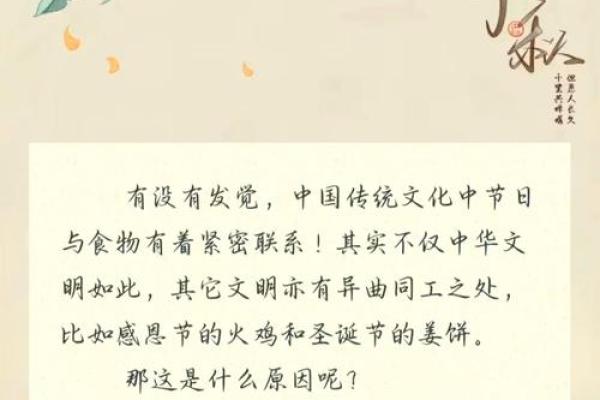 秋
但愿人长久
千里共婵娟
有没有发觉，中国传统文化中节日
与食物有着紧密联系！其实不仅中华文
明如此，其它文明亦有异曲同工之处，
比如感恩节的火鸡和圣诞节的姜饼。
那这是什么原因呢？